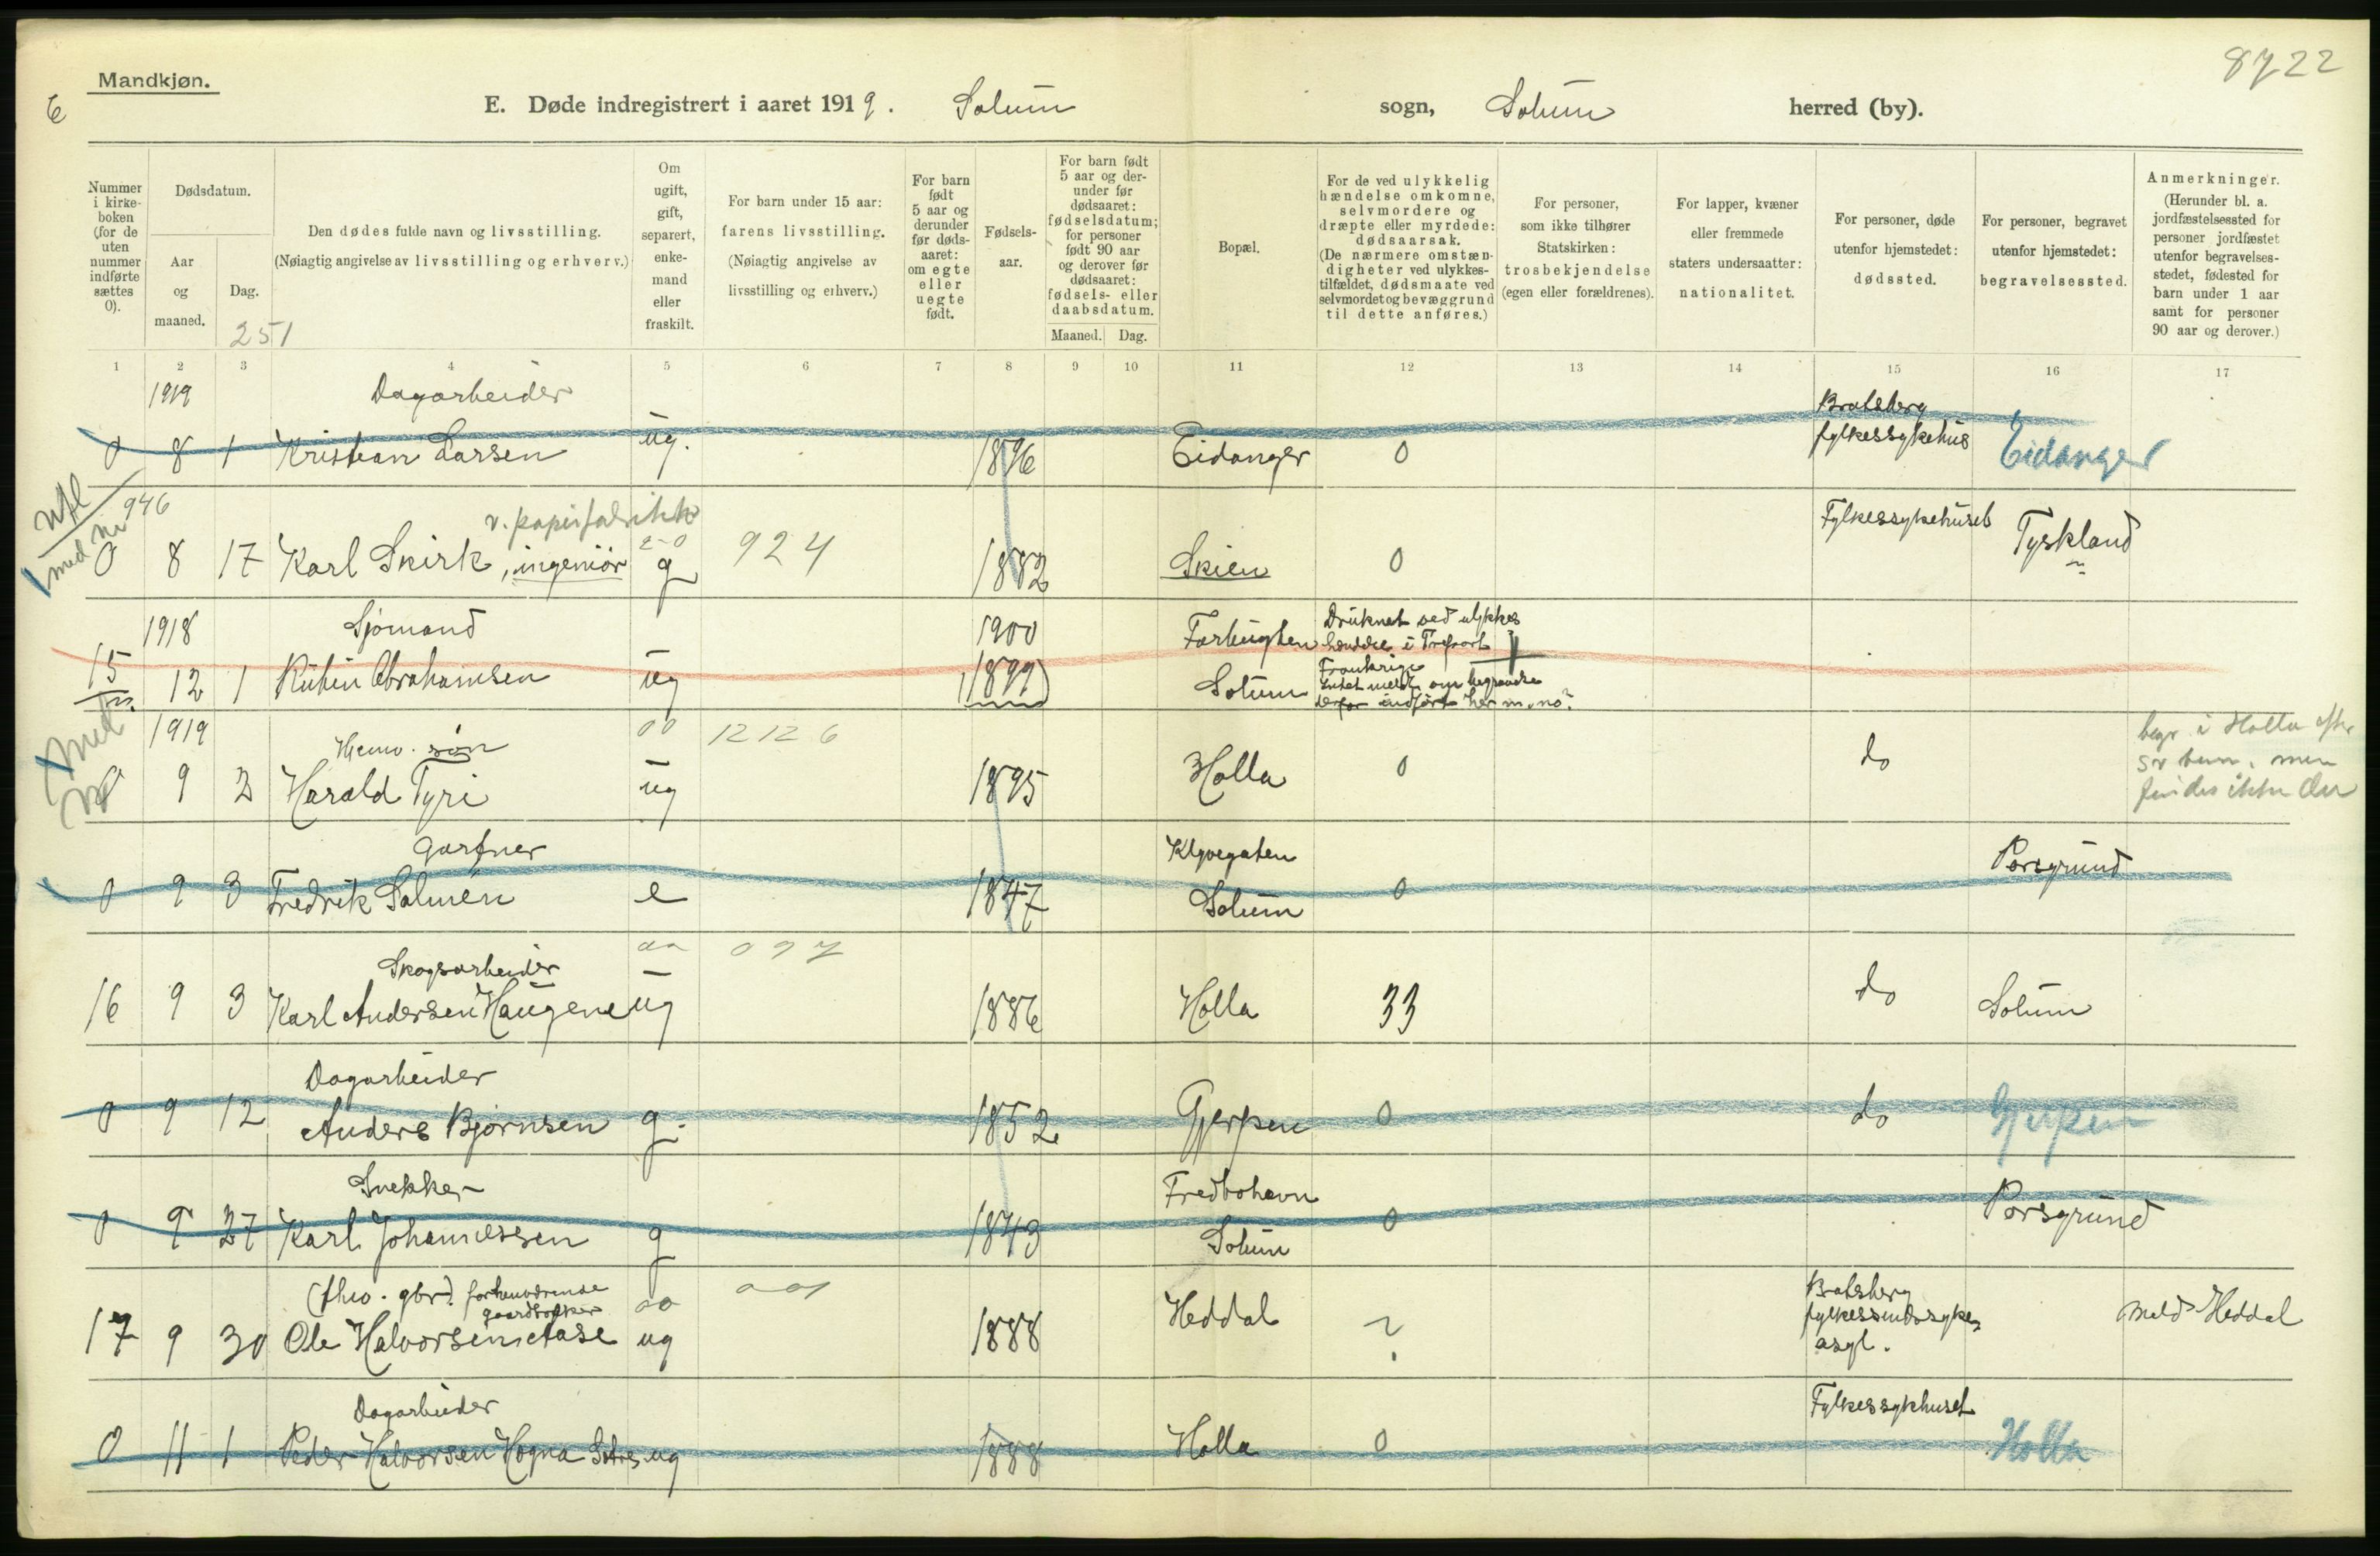 Mandkjøn.
8722
6
E. Døde indregistrert i aaret 1919. Solum sogn, Solum herred (by).
Nummer i kirkeboken (for de uten nummer indførte sættes 0).
Dødsdatum.
Aar og maaned.
Dag.
251
Den dødes fulde navn og livsstilling.
(Nøiagtig angivelse av livsstilling og erhverv.)
Om ugift, gift, separert, enkemand eller fraskilt.
For barn under 15 aar: farens livsstilling.
(Nøiagtig angivelse av livsstilling og erhverv.)
For barn født 5 aar og derunder før dødsaaret: om egte eller uegte født.
Fødselsaar.
For barn født 5 aar og derunder før dødsaaret: fødselsdatum; for personer født 90 aar og derover før dødsaaret: fødsels- eller daabsdatum.
Maaned. Dag.
Bopæl.
For de ved ulykkelig hændelse omkomne, selvmordere og dræpte eller myrdede: dødsaarsak.
(De nærmere omstændigheter ved ulykkestilfældet, dødsmaate ved selvmordet og bevæggrund til dette anføres.)
For personer, som ikke tilhører Statskirken: trosbekjendelse (egen eller forældrenes).
For lapper, kvæner eller fremmede staters undersaatter: nationalitet.
For personer, døde utenfor hjemstedet: dødssted.
For personer, begravet utenfor hjemstedet: begravelsessted.
Anmerkninger.
(Herunder bl. a. jordfæstelsessted for personer jordfæstet utenfor begravelsesstedet, fødested for barn under 1 aar samt for personer 90 aar og derover.)
1 2 3 4 5 6 7 8 9 10 11 12 13 14 15 16 17
1919 Dagarbeider Bratsberg
0 8 1 Kristian Larsen ug. 1896 Eidanger 0 fylkessykehus Eidanger
946 v. papirfabrikk Fylkessykehuset
med nr
0 8 17 Karl Skirk, ingeniør g 924 1882 Skien 0 Tyskland
1918 Sjømand 1900 Druknet ved ulykkes
15 12 1 Ruben Abrahamsen ug (1899) Solum
Frankrige
1919 Hemv. søn 00 12126 begr. i Holla efter
0 9 2 Harald Tyri ug 1895 Holla 0 do
men
findes ikke der
Gartner Klyvegaten
0 9 3 Fredrik Salmén e 1847 Solum 0 Porsgrund
Skogsarbeider 097
16 9 3 Karl Andersen Haugene ug 1886 Holla 33 do Solum
Dagarbeider
0 9 12 Anders Bjørnsen g. 1852 Gjerpen 0 do Gjerpen
Snekker Fredbohavn
0 9 27 Karl Johannessen g 1843 Solum 0 Porsgrund
forhenværende Bratsberg
17 9 30 Ole Halvorsen Aase ug 1888 Heddal ? fylkessindssyke asyl. Meld Heddal
Dagarbeider Fylkessykhuset
0 11 1 Peder Halvorsen Hogna ug 1888 Holla 0 Holla